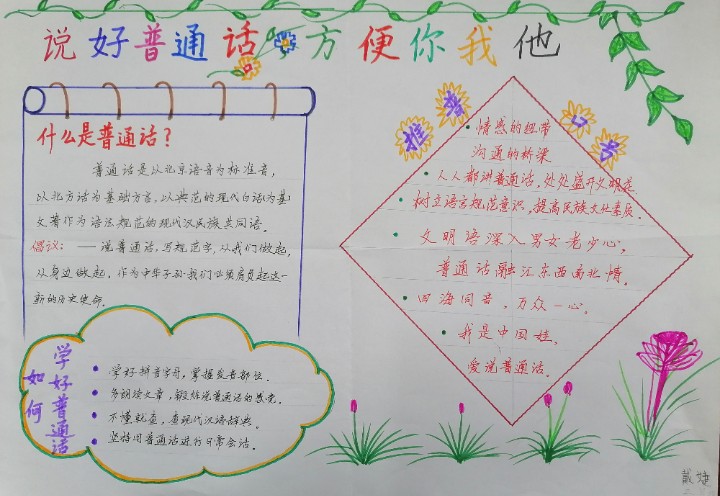 说好普通话 方便你我他
什么是普通话？
普通话是以北京语音为标准音，
以北方话为基础方言，以典范的现代白话为基
文著作为语法规范的现代汉民族共同语。
倡议：——说普通话，写规范字，从我们做起，
从身边做起，作为中华子孙我们必须肩负起这一
新的历史使命。
如何
学好普通话
学好拼音字母，掌握发音部位。
多朗读文章，锻炼说普通话的感觉。
不懂就查，查现代汉语辞典。
坚持用普通话进行日常会话。
推普
口号
情感的纽带
沟通的桥梁
人人都讲普通话，处处盛开文明花
树立语言规范意识，提高民族文化素质。
文明语深入男女老少心，
普通话融汇东西南北情。
四海同音，万众一心。
我是中国娃，
爱说普通话。
戴